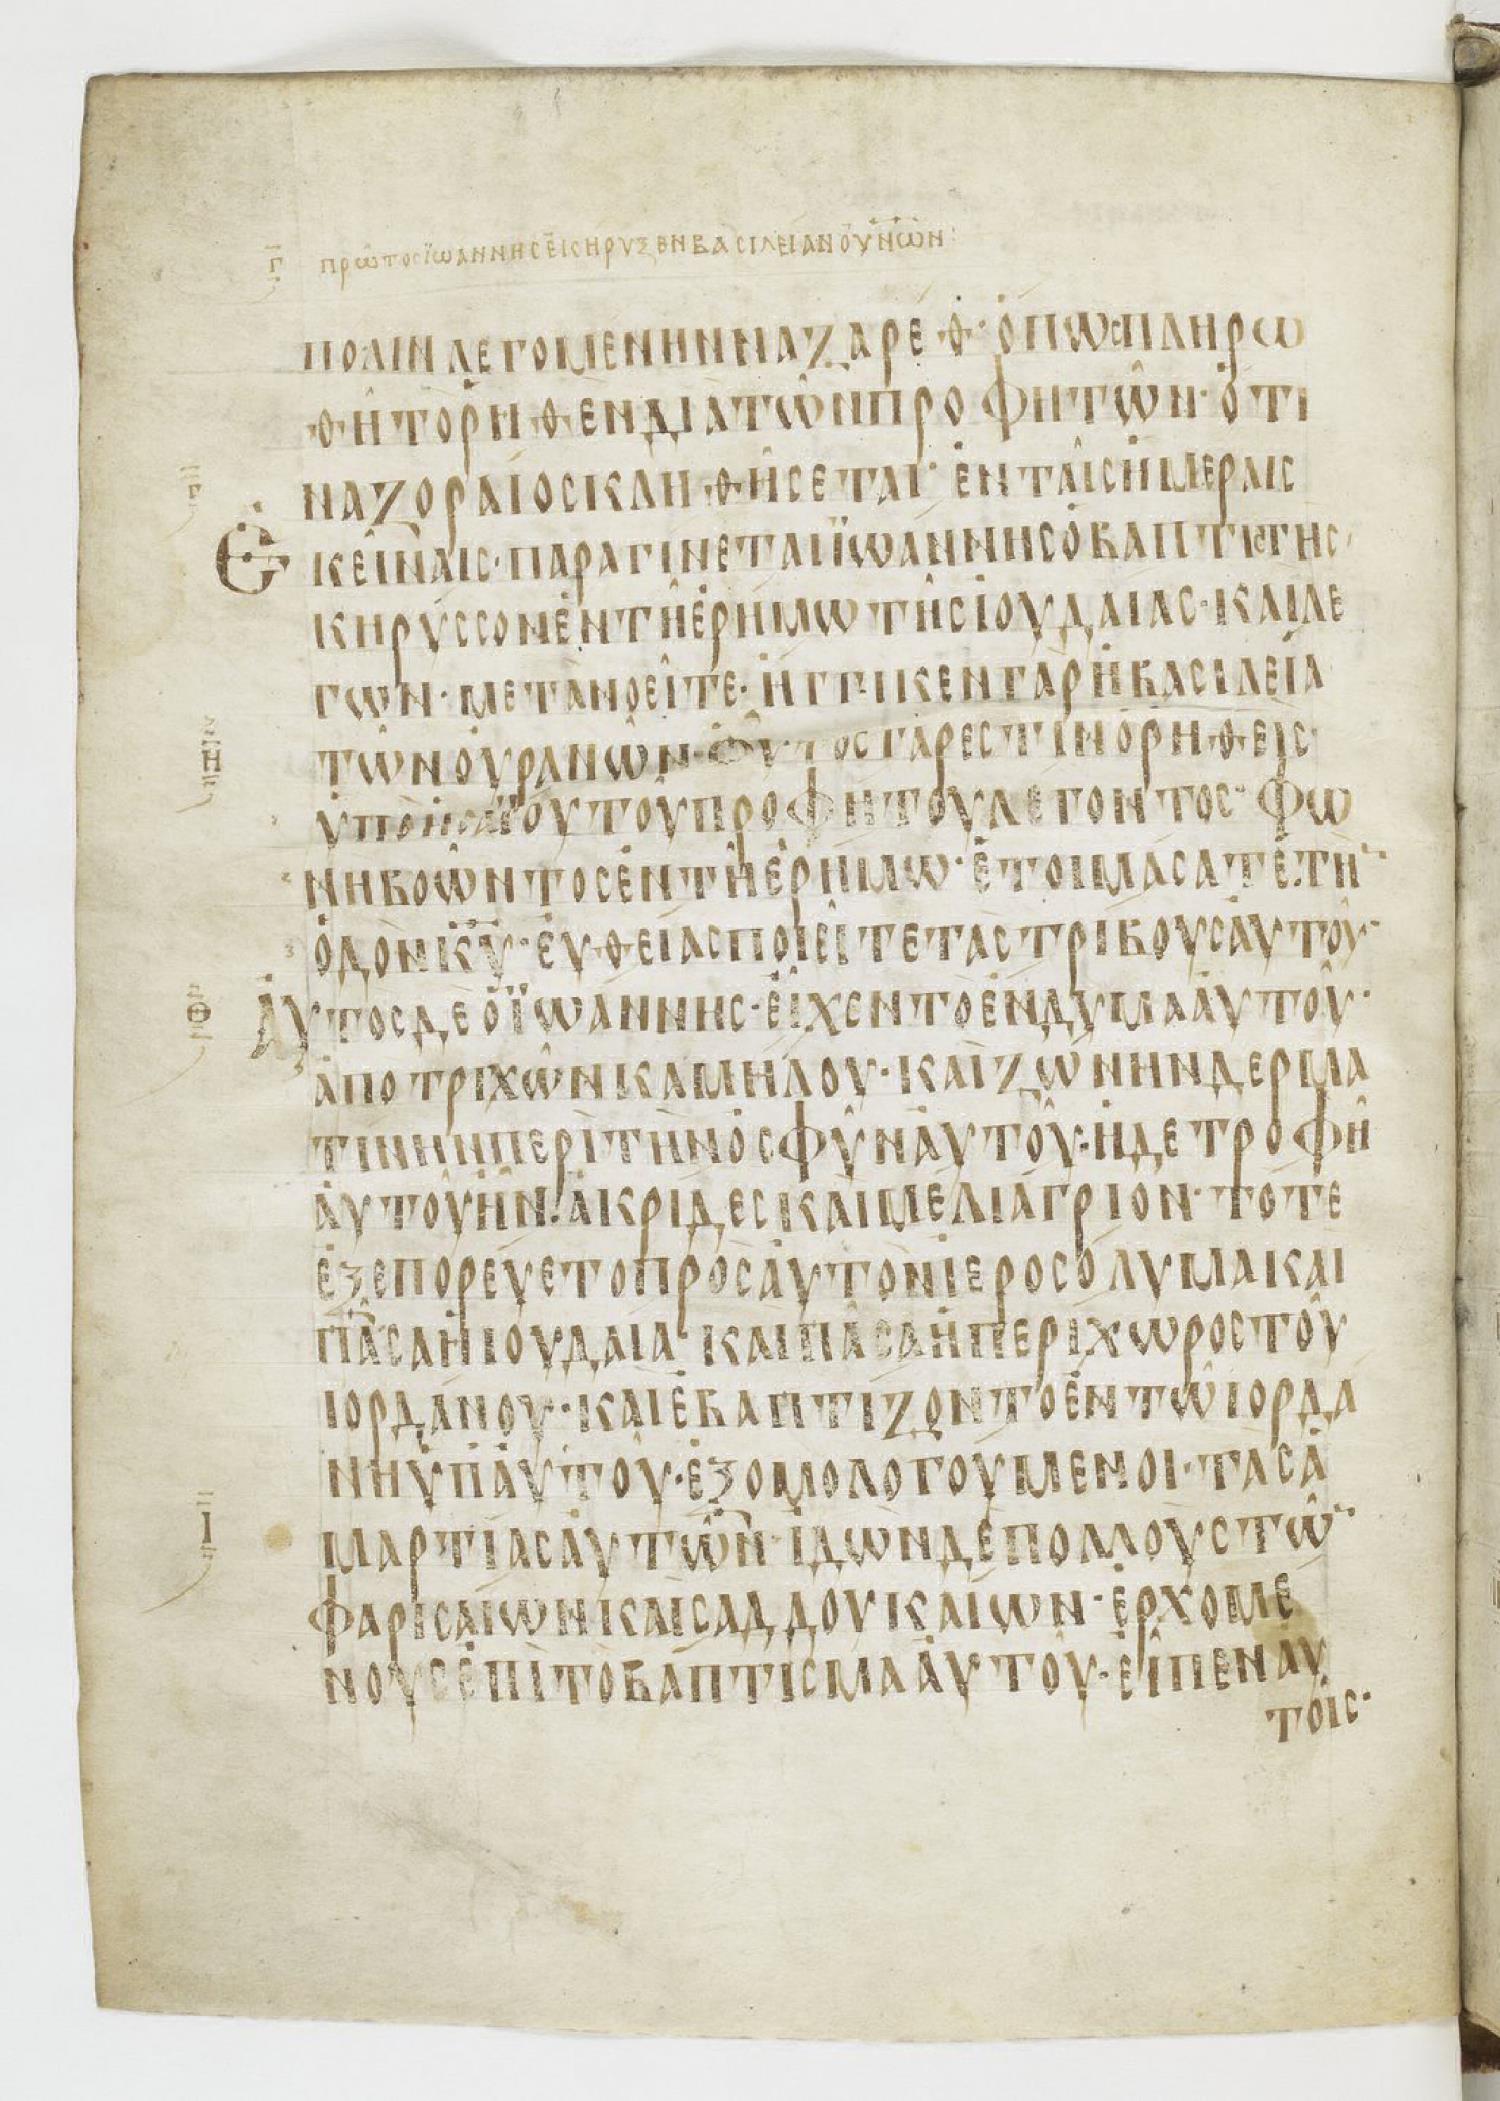 Γ ΠΡῶΤΟCἸΩΑΝΝΗCἘΙCΗΡΥΞΕΝΒΑCΙΛΕΙΑΝΟΥΝῶΝ:
ΠΟΛΙΝΛΕΓΟΜΕΝΗΝΝΑΖΑΡΕΘ·ὁΠΩCΠΛΗΡΩ
ΘΗΤΟΡΗΘΕΝΔΙΑΤῶΝΠΡΟΦΗΤῶΝ·ὁΤΙ
ΝΑΖΟΡΑΙΟCΚΛΗΘΗCΕΤΑΙ·ἐΝΤΑῖCἡΜΕΡΑΙC
Ε ΚΕΙΝΑΙC·ΠΑΡΑΓΙΝΕΤΑΙΪΩΑΝΝΗCὁΒΑΠΤΙCΤΗC·
ΚΗΡΥCCΟΝἐΝΤῆἐΡΗΜΩΤῆCΙΟΥΔΑΙΑC·ΚΑΙΛΕ
ΓΩΝ·ΜΕΤΑΝΟΕῖΤΕ·ἠΓΓΙΚΕΝΓΑΡἡΒΑCΙΛΕΙΑ
Η ΤῶΝΟΥΡΑΝῶΝ·ΟΥΤΟCΓΑΡΕCΤΙΝὁΡΗΘΕΙC·
ΥΠΟΗCΑΪΟΥΤΟῦΠΡΟΦΗΤΟΥΛΕΓΟΝΤΟC·ΦΩ
ΝΗΒΟῶΝΤΟCἐΝΤῆἐΡΗΜΩ·ἑΤΟΙΜΑCΑΤΕ·ΤΗ
ὁΔΟΝΚΥ·ΕΥΘΕΙΑCΠΟΙΕῖΤΕΤΑCΤΡΙΒΟΥCΑΥΤΟῦ·
Θ ΑΥΤΟCΔΕὁΪΩΑΝΝΗC·ΕΙΧΕΝΤΟἐΝΔΥΜΑΑΥΤΟῦ·
ἀΠΟΤΡΙΧῶΝΚΑΜΗΛΟΥ·ΚΑΙΖΩΝΗΝΔΕΡΜΑ
ΤΙΝΗΝΠΕΡΙΤΗΝὀCΦῦΝΑΥΤΟῦ·ἡΔΕΤΡΟΦῆ
ΑΥΤΟῦἦΝ·ἀΚΡΙΔΕCΚΑΙΜΕΛΙΑΓΡΙΟΝ·ΤΟΤΕ
ἐΞΕΠΟΡΕΥΕΤΟΠΡΟCΑΥΤΟΝΙΕΡΟCΟΛΥΜΑΚΑΙ
ΠᾶCΑἡΙΟΥΔΑΙΑ·ΚΑΙΠᾶCΑἡΠΕΡΙΧΩΡΟCΤΟῦ
ΙΟΡΔΑΝΟΥ·ΚΑΙἐΒΑΠΤΙΖΟΝΤΟἐΝΤῶΙΟΡΔΑ
ΝΗΥΠΑΥΤΟῦ·ἐΞΟΜΟΛΟΓΟΥΜΕΝΟΙ·ΤΑCἁ
Ι ΜΑΡΤΙΑCΑΥΤῶΝ·ΙΔΩΝΔΕΠΟΛΛΟΥCΤῶ
ΦΑΡΙCΑΙΩΝΚΑΙCΑΔΔΟΥΚΑΙΩΝ·ἐΡΧΟΜΕ
ΝΟΥCἐΠΙΤΟΒΑΠΤΙCΜΑΑΥΤΟῦ·ΕῖΠΕΝΑΥ
ΤΟῖC·